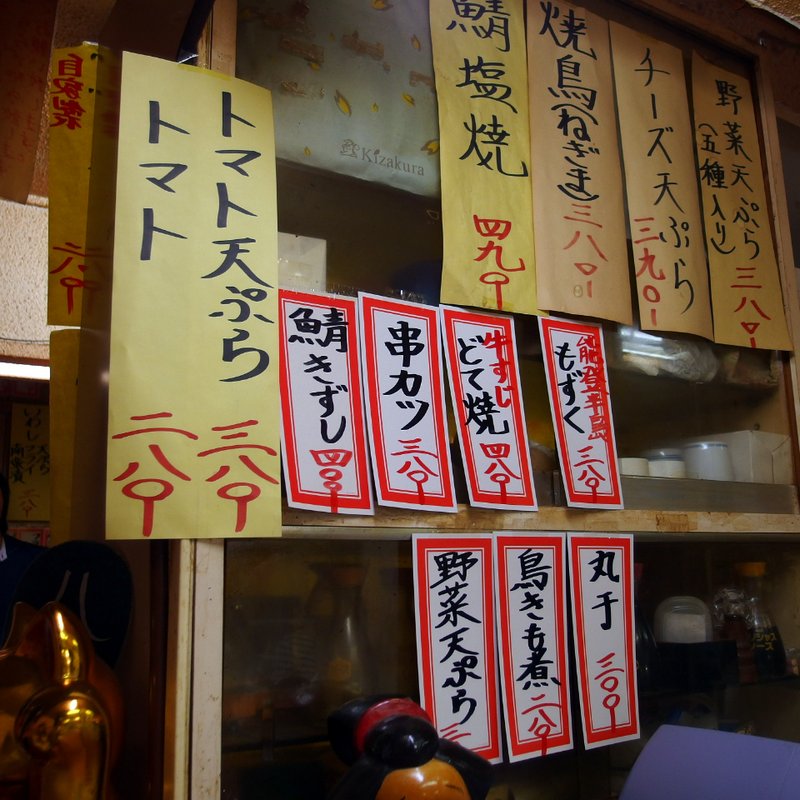 自家製
トマト天ぷら 三八〇
トマト 二八〇
鯖塩焼 四九〇
焼鳥(ねぎま) 三八〇
チーズ天ぷら 三九〇
野菜天ぷら
(五種入り) 三八〇
Kizakura
鯖きずし 四〇〇
串カツ 三八〇
牛すじ
どて焼 四八〇
能登半島
もずく 二八〇
野菜天ぷら
鳥きも煮 二八〇
丸干 三〇〇
いわし
フライ
天ぷら